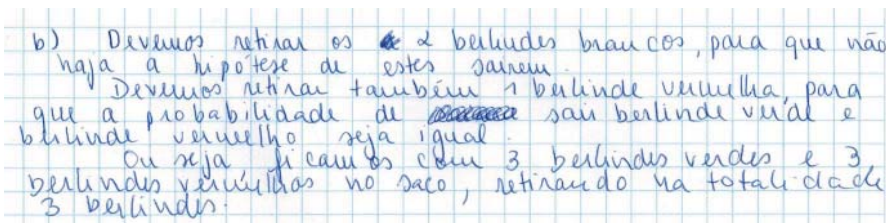 b) Devemos retirar os 2 berlindes brancos, para que não
haja a hipótese de estes sairem.
Devemos retirar também 1 berlinde vermelha, para
que a probabilidade de sair berlinde verde e
berlinde vermelho seja igual.
Ou seja ficamos com 3 berlindes verdes e 3
berlindes vermelhos no saco, retirando na totalidade
3 berlindes.